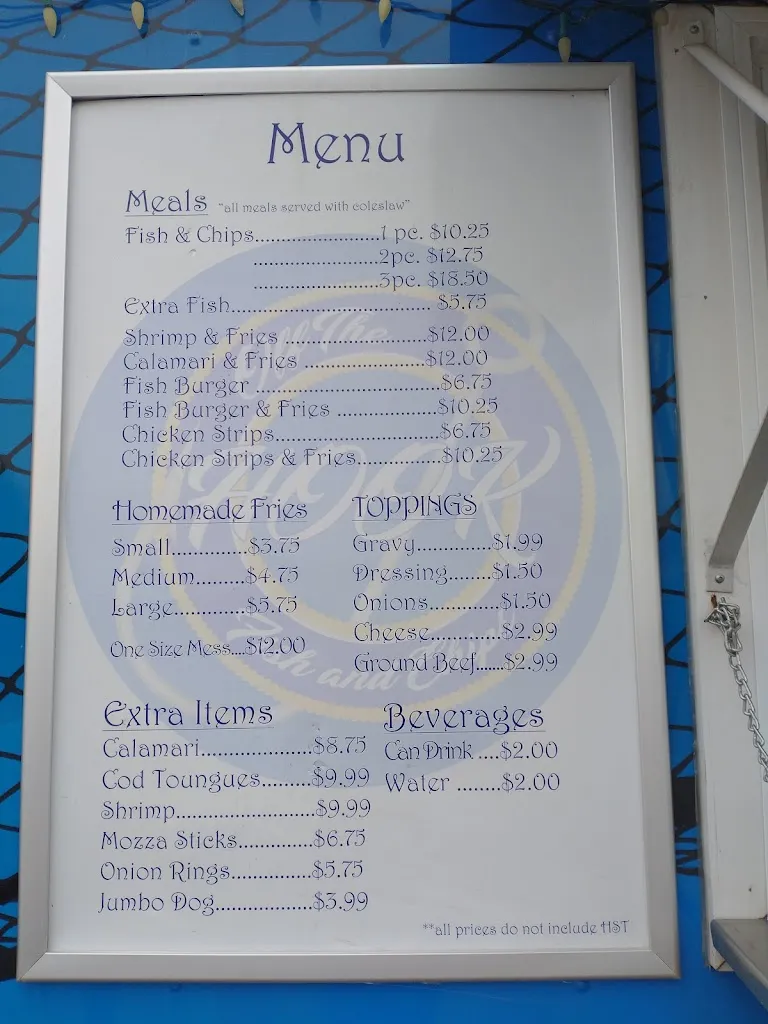 Menu
Meals "all meals served with coleslaw"
Fish & Chips........................1 pc. $10.25
........................2pc. $12.75
........................3pc. $18.50
Extra Fish................................... $5.75
Shrimp & Fries ...........................$12.00
Calamari & Fries .......................$12.00
Fish Burger ..................................$6.75
Fish Burger & Fries ...................$10.25
Chicken Strips...............................$6.75
Chicken Strips & Fries................$10.25
Homemade Fries
Small..............$3.75
Medium.........$4.75
Large.............$5.75
One Size Mess....$12.00
TOPPINGS
Gravy..............$1.99
Dressing........$1.50
Onions.............$1.50
Cheese.............$2.99
Ground Beef......$2.99
Extra Items
Calamari.....................$8.75
Cod Toungues.........$9.99
Shrimp..........................$9.99
Mozza Sticks..............$6.75
Onion Rings...............$5.75
Jumbo Dog..................$3.99
Beverages
Can Drink ....$2.00
Water ........$2.00
**all prices do not include HST
Off The
HOOK
Fish and Chips